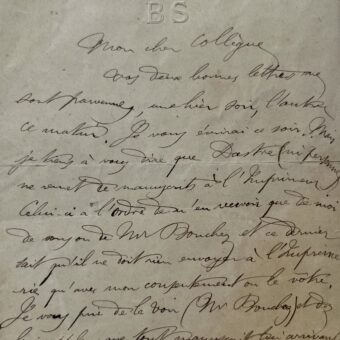 BS
Mon cher Collègue
vos deux bonnes lettres me
sont parvenues, une hier soir, l'autre
ce matin. Je vous écrirai ce soir. Mais
je tiens à vous dire que Dastre (ni personne)
ne remet de manuscrits à l'Imprimeur
Celui-ci a l'ordre de n'en recevoir que de moi
de son de Mr Bouchez et ce dernier
sait qu'il ne doit rien envoyer à l'Imprime
rie qu'avec mon consentement ou le vôtre.
Je vous prie de le voir (Mr Bouchez) et
que tout manuscrit